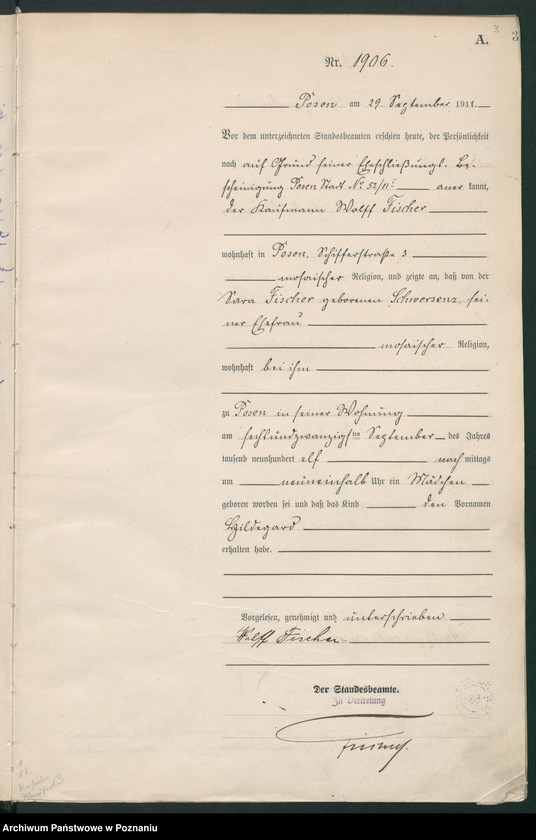 A.
3
3
Nr. 1906.
Posen am 29. September 1911.
Vor dem unterzeichneten Standesbeamten erschien heute, der Persönlichkeit
nach auf Grund seiner Eheschließungs. Be-
scheinigung Posen Stadt No 52/11 anerkannt,
der Kaufmann Wolff Fischer
wohnhaft in Posen, Schifferstraße 3
mosaischer Religion, und zeigte an, daß von der
Sara Fischer geborenen Schwersenz, sei-
ner Ehefrau
mosaischer Religion,
wohnhaft bei ihm
zu Posen in seiner Wohnung
am sechsundzwanzigsten September des Jahres
tausend neunhundert elf nachmittags
um neuneinhalb Uhr ein Mädchen
geboren worden sei und daß das Kind den Vornamen
Hildegard
erhalten habe.
Vorgelesen, genehmigt und unterschrieben
Wolff Fischer
Der Standesbeamte.
In Vertretung
Archiwum Państwowe w Poznaniu